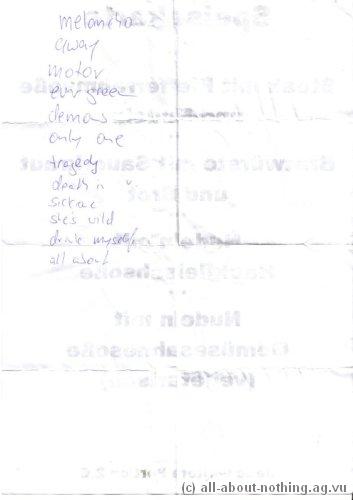 melancho
away
motor
evergreen
demons
only one
tragedy
death in
she's wild
drink myself
all about
Speisekarte
Steak mit Pfeffer
Bratwürste mit Sauerkraut
und
Brot
Nudeln mit
Hackfleischsoße
Nudeln mit
Gemüsesahnesoße
(vegetarisch)
(c) all-about-nothing.ag.vu